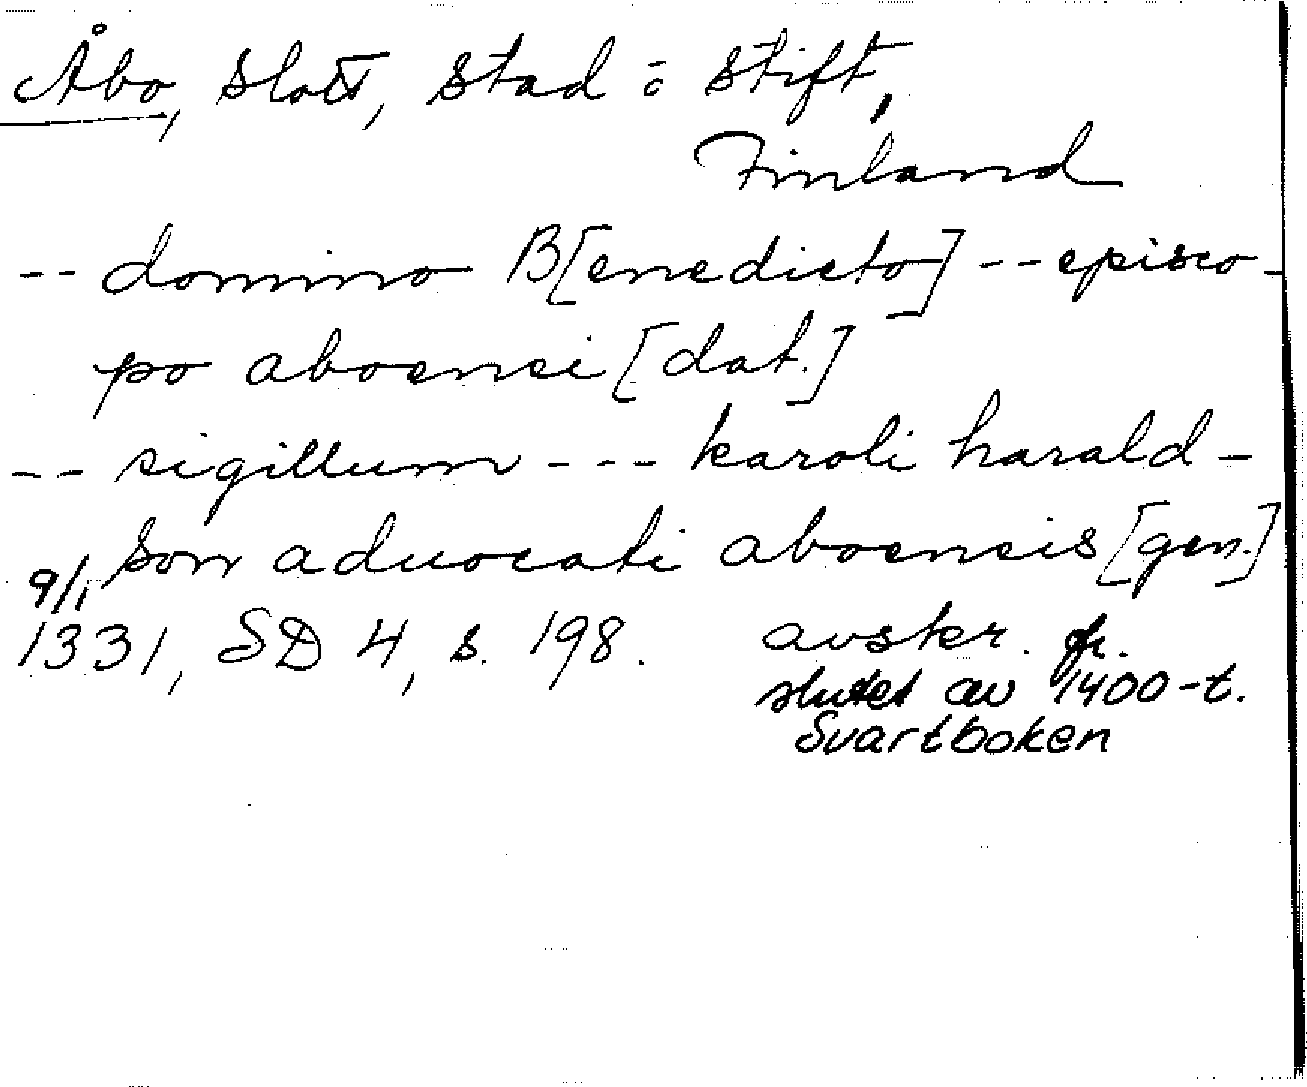 Åbo, slott, stad o stift,
Finland
-- domino B[enedicto] -- episco-
po aboensi [dat.]
-- sigillum --- karoli harald-
son aduocati aboensis [gen.]
9/1
1331, SD 4, s. 198. avskr. fr.
slutet av 1400-t.
Svartboken